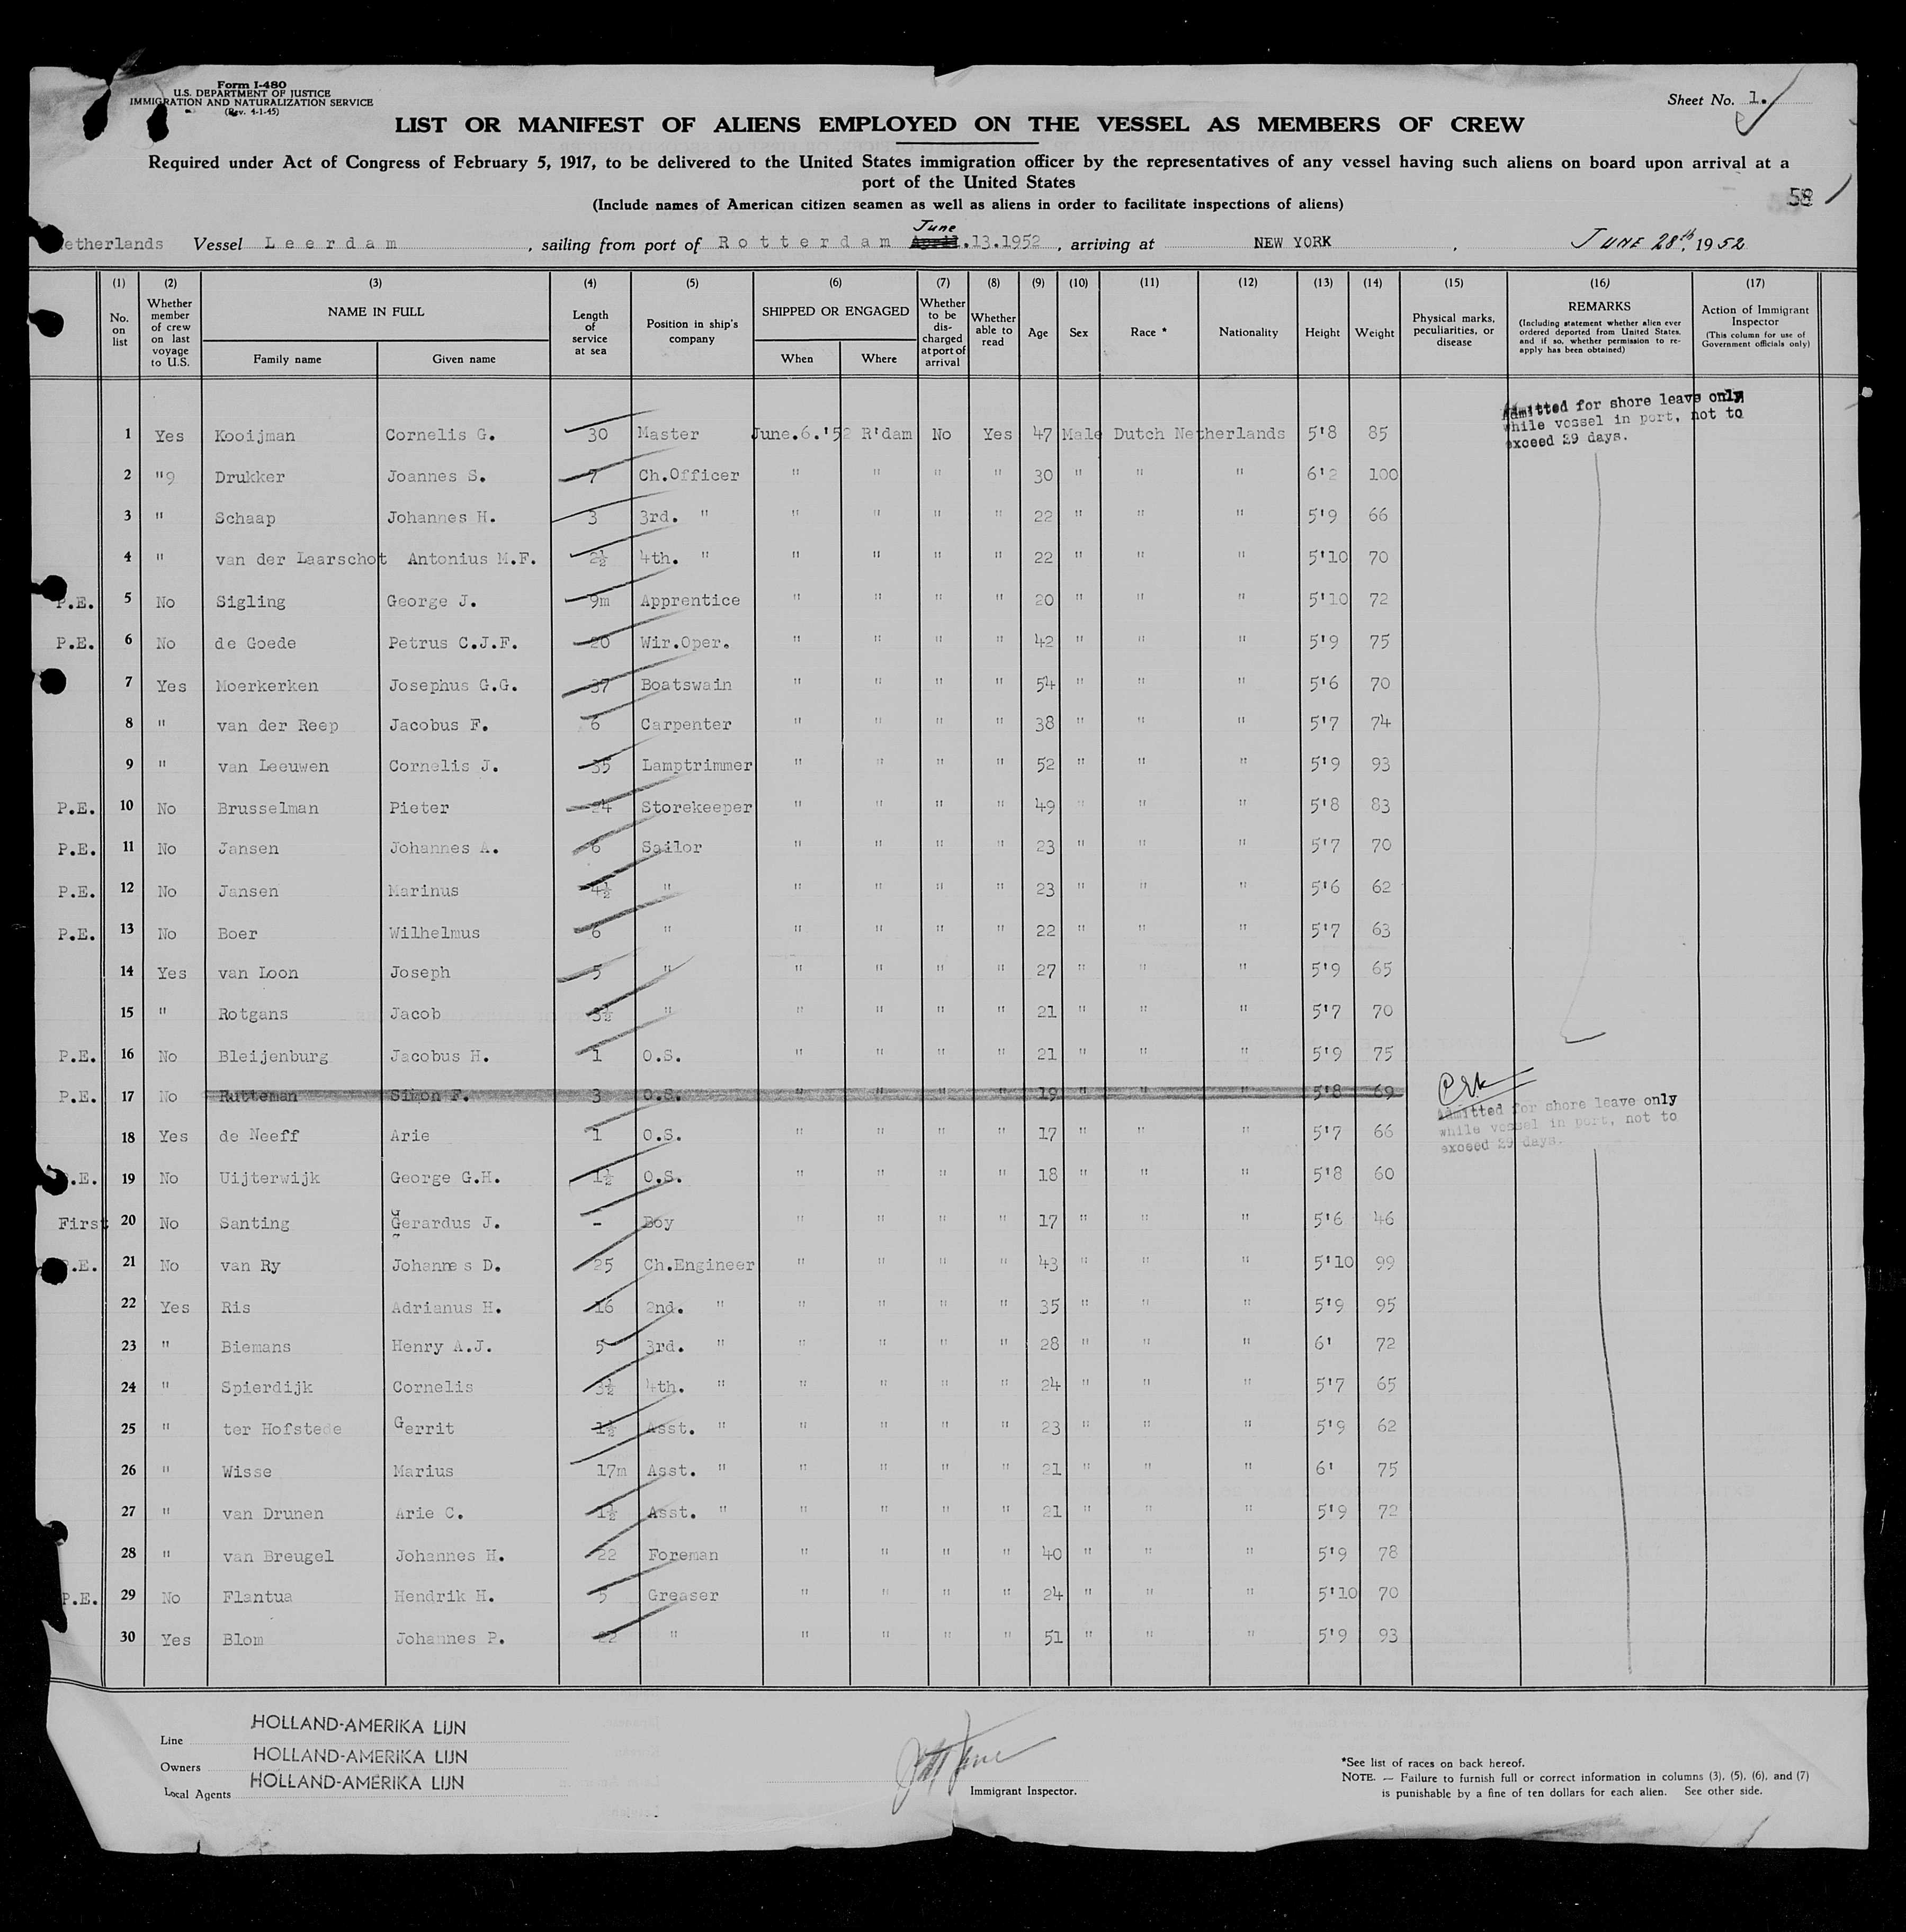 Form I-480
U.S. DEPARTMENT OF JUSTICE
IMMIGRATION AND NATURALIZATION SERVICE
(Rev. 4-1-45)
Sheet No. 1.
LIST OR MANIFEST OF ALIENS EMPLOYED ON THE VESSEL AS MEMBERS OF CREW
Required under Act of Congress of February 5, 1917, to be delivered to the United States immigration officer by the representatives of any vessel having such aliens on board upon arrival at a
port of the United States
58
(Include names of American citizen seamen as well as aliens in order to facilitate inspections of aliens)
June
etherlands Vessel Leerdam, sailing from port of Rotterdam April.13.1952, arriving at NEW YORK, JUNE 28th, 1952
(1) (2) (3) (4) (5) (6) (7) (8) (9) (10) (11) (12) (13) (14) (15) (16) (17)
No. on list
Whether member of crew on last voyage to U.S.
NAME IN FULL
Family name Given name
Length of service at sea
Position in ship's company
SHIPPED OR ENGAGED
When Where
Whether to be discharged at port of arrival
Whether able to read
Age
Sex
Race *
Nationality
Height
Weight
Physical marks, peculiarities, or disease
REMARKS
(Including statement whether alien ever ordered deported from United States, and if so, whether permission to re-apply has been obtained)
Action of Immigrant Inspector
(This column for use of Government officials only)
Admitted for shore leave only
while vessel in port, not to
exceed 29 days.
1 Yes Kooijman Cornelis G. 30 Master June.6.'52 R'dam No Yes 47 Male Dutch Netherlands 5'8 85
2 "9 Drukker Joannes S. 7 Ch.Officer " " " " 30 " " " 6'2 100
3 " Schaap Johannes H. 3 3rd. " " " " " 22 " " " 5'9 66
4 " van der Laarschot Antonius M.F. 2½ 4th. " " " " " 22 " " " 5'10 70
P.E. 5 No Sigling George J. 9m Apprentice " " " " 20 " " " 5'10 72
P.E. 6 No de Goede Petrus C.J.F. 20 Wir.Oper. " " " " 42 " " " 5'9 75
7 Yes Moerkerken Josephus G.G. 37 Boatswain " " " " 54 " " " 5'6 70
8 " van der Reep Jacobus F. 6 Carpenter " " " " 38 " " " 5'7 74
9 " van Leeuwen Cornelis J. 35 Lamptrimmer " " " " 52 " " " 5'9 93
P.E. 10 No Brusselman Pieter 24 Storekeeper " " " " 49 " " " 5'8 83
P.E. 11 No Jansen Johannes A. 6 Sailor " " " " 23 " " " 5'7 70
P.E. 12 No Jansen Marinus 4½ " " " " " 23 " " " 5'6 62
P.E. 13 No Boer Wilhelmus 6 " " " " " 22 " " " 5'7 63
14 Yes van Loon Joseph 5 " " " " " 27 " " " 5'9 65
15 " Rotgans Jacob 3½ " " " " " 21 " " " 5'7 70
P.E. 16 No Bleijenburg Jacobus H. 1 O.S. " " " " 21 " " " 5'9 75
P.E. 17 No Rutteman Simon F. 3 O.S. " " " " 19 " " " 5'8 69
Admitted for shore leave only
while vessel in port, not to
exceed 29 days.
18 Yes de Neeff Arie 1 O.S. " " " " 17 " " " 5'7 66
.E. 19 No Uijterwijk George G.H. 1½ O.S. " " " " 18 " " " 5'8 60
First 20 No Santing Gerardus J. - Boy " " " " 17 " " " 5'6 46
.E. 21 No van Ry Johannes D. 25 Ch.Engineer " " " " 43 " " " 5'10 99
22 Yes Ris Adrianus H. 16 2nd. " " " " " 35 " " " 5'9 95
23 " Biemans Henry A.J. 5 3rd. " " " " " 28 " " " 6' 72
24 " Spierdijk Cornelis 3½ 4th. " " " " " 24 " " " 5'7 65
25 " ter Hofstede Gerrit 1½ Asst. " " " " " 23 " " " 5'9 62
26 " Wisse Marius 17m Asst. " " " " " 21 " " " 6' 75
27 " van Drunen Arie C. 1½ Asst. " " " " " 21 " " " 5'9 72
28 " van Breugel Johannes H. 22 Foreman " " " " 40 " " " 5'9 78
P.E. 29 No Flantua Hendrik H. 5 Greaser " " " " 24 " " " 5'10 70
30 Yes Blom Johannes P. 22 " " " " " 51 " " " 5'9 93
Line HOLLAND-AMERIKA LIJN
Owners HOLLAND-AMERIKA LIJN
Local Agents HOLLAND-AMERIKA LIJN
Immigrant Inspector.
*See list of races on back hereof.
NOTE. — Failure to furnish full or correct information in columns (3), (5), (6), and (7)
is punishable by a fine of ten dollars for each alien. See other side.